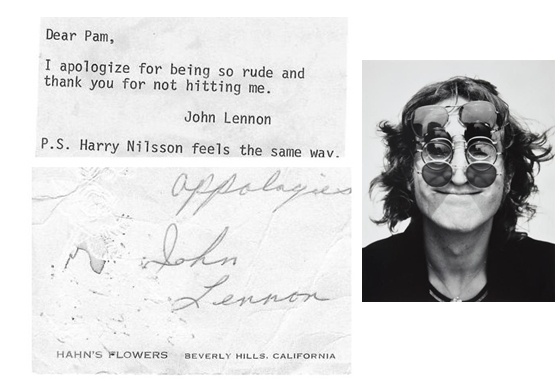 Dear Pam,
I apologize for being so rude and
thank you for not hitting me.
John Lennon
P.S. Harry Nilsson feels the same way.
Appologies
John
Lennon
HAHN'S FLOWERS BEVERLY HILLS. CALIFORNIA